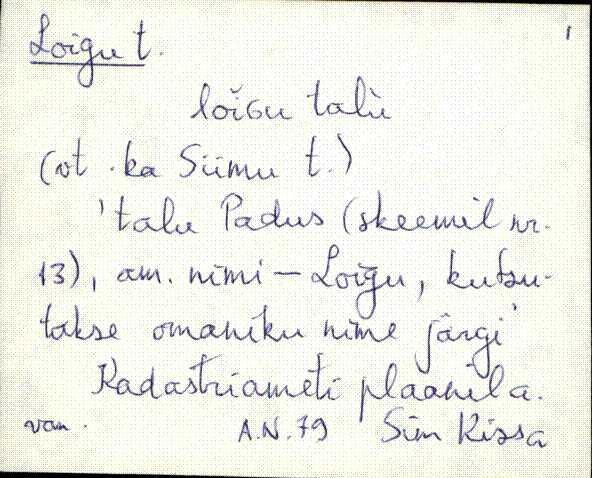 Loigu t. 1
loiGu talù
(vt. ka Siimu t.)
'talu Padus (skeemil nr.
13), am. nimi – Loigu, kutsu-
takse omaniku nime järgi'
Kadastriameti plaanil a.
van. A.N.79 Sím Kissa